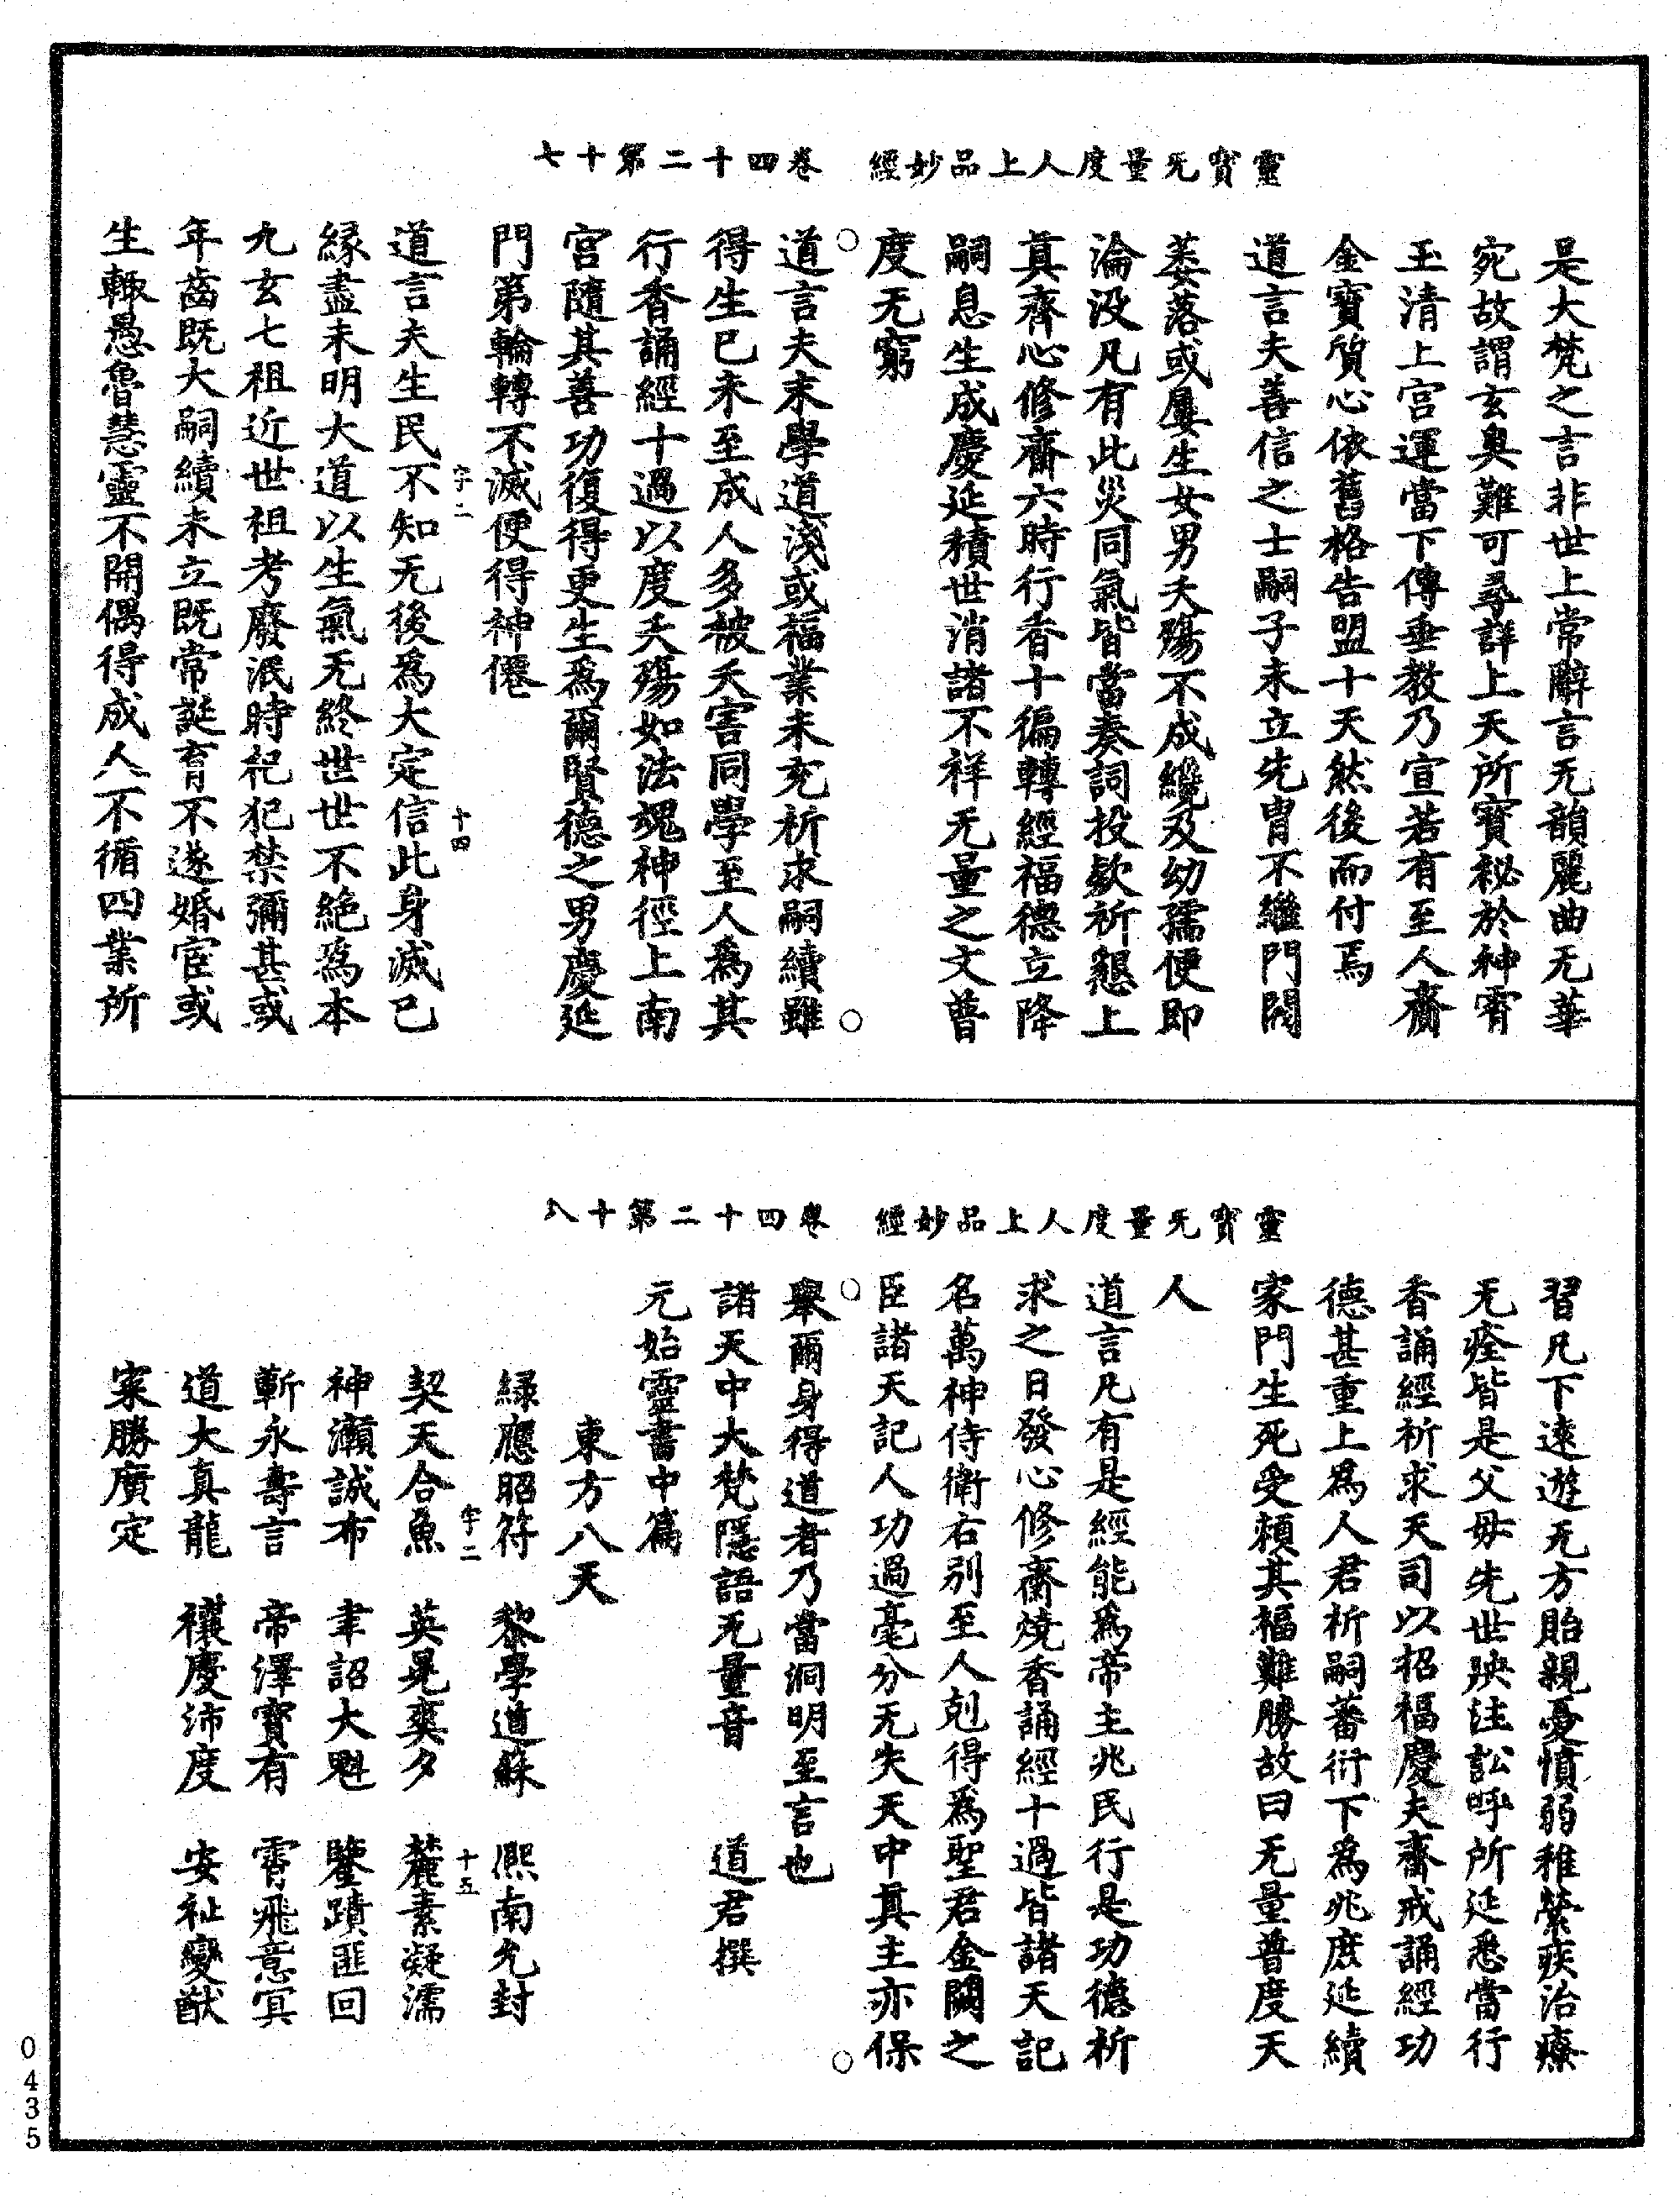 靈寶无量度人上品妙經　卷四十二第十七
是大梵之言非世上常辭言无韻麗曲无華
宛故謂玄奥難可尋詳上天所寶秘於神霄
玉清上宫運當下傳垂教乃宣若有至人齎
金寶質心依舊格告盟十天然後而付焉
道言夫善信之士嗣子未立先胄不繼門閥
萎落或屢生女男夭殤不成纔及幼孺便即
淪没凡有此災同氣皆當奏詞投欵祈懇上
真齊心修齋六時行香十徧轉經福德立降
嗣息生成慶延積世消諸不祥无量之文普
度无窮
道言夫末學道淺或福業未充祈求嗣續雖
得生已未至成人多被夭害同學至人爲其
行香誦經十過以度夭殤如法魂神徑上南
宫隨其善功復得更生爲爾賢德之男慶延
門第輪轉不滅便得神僊
字二　十四
道言夫生民不知无後爲大定信此身滅已
緣盡未明大道以生氣无終世世不絶爲本
九玄七祖近世祖考廢泯時祀犯禁彌甚或
年齒既大嗣續未立既常誕育不遂婚宦或
生輙愚魯慧靈不開偶得成人不循四業所
靈寶无量度人上品妙經　卷四十二第十八
習凡下遠遊无方貽親憂憤弱稚縈疾治療
无痊皆是父毋先世殃注訟呼所延悉當行
香誦經祈求天司以招福慶夫齋戒誦經功
德甚重上爲人君祈嗣蕃衍下爲兆庶延續
家門生死受頼其福難勝故曰无量普度天
人
道言凡有是經能爲帝主兆民行是功德祈
求之日發心修齋燒香誦經十過皆諸天記
名萬神侍衛右别至人剋得爲聖君金闕之
臣諸天記人功過毫分无失天中真主亦保
舉爾身得道者乃當洞明至言也
諸天中大梵隱語无量音　道君撰
元始靈書中篇
東方八天
緑應昭符　黎學道蘇　熈南允封
字二　十五
契天合魚　英晃奭夕　麓素凝濡
神瀬誠布　聿詔大魁　鑒蹟匪回
斬永壽言　帝澤寶有　霄飛意冥
道大真龍　禳慶沛度　安祉變猷
案勝廣定
0435